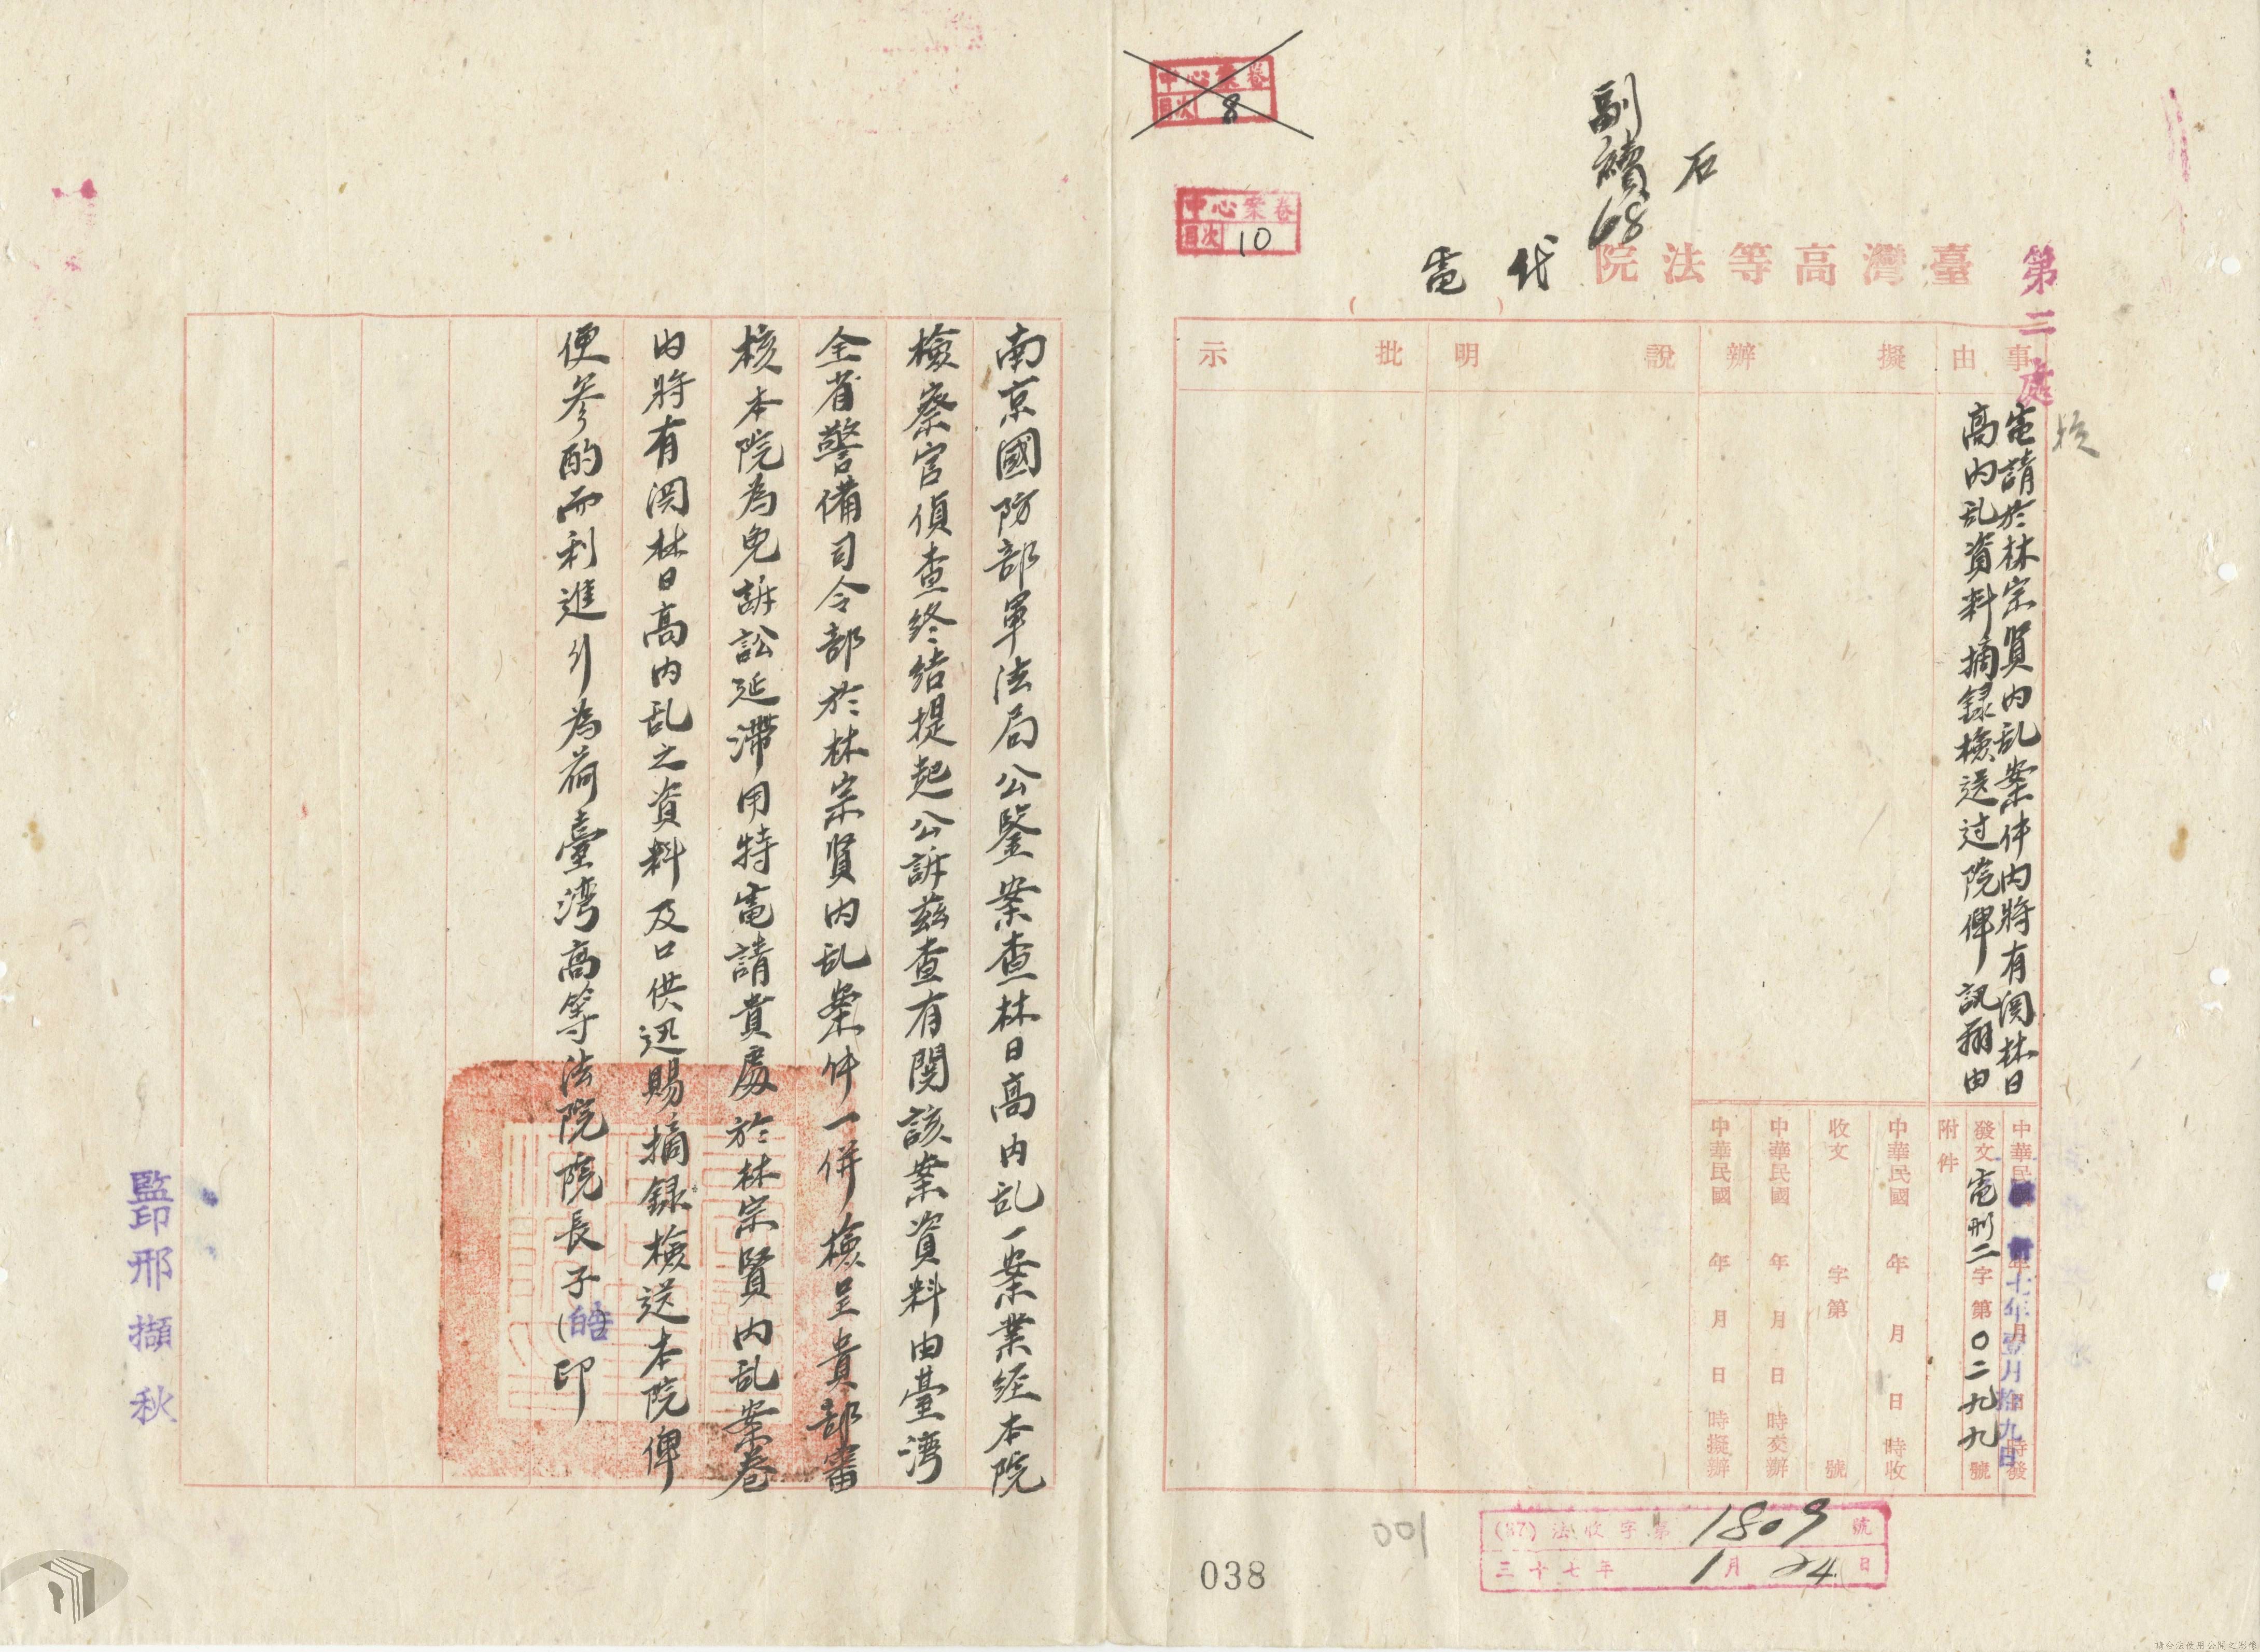 中心案卷
目次 8
中心案卷
目次 10
石
副
續
68
臺灣高等法院代電
第三處
事由
擬辦
說明
批示
電請於林宗賢內乱案件內將有関林日
高內乱資料摘録檢送过院俾訊辦由
附件
發文電刑二字第〇二九九號
中華民國卅七年壹月拾九日時發
中華民國 年 月 日 時收
收文 字第 號
中華民國 年 月 日 時交辦
中華民國 年 月 日 時擬辦
(37)法收字第1809號
三十七年1月24日
001
038
南京國防部軍法局公鑒案查林日高內乱一案業经本院
檢察官偵查终结提起公訴茲查有関該案資料由臺湾
全省警備司令部於林宗賢內乱案件一併檢呈貴部審
核本院為免訴訟延滯用特電請貴處於林宗賢內乱案卷
內將有関林日高內乱之資料及口供迅賜摘録檢送本院俾
便参酌而利進行為荷臺湾高等法院院長子(皓)印
監印邢擷秋
請合法使用公開之影像